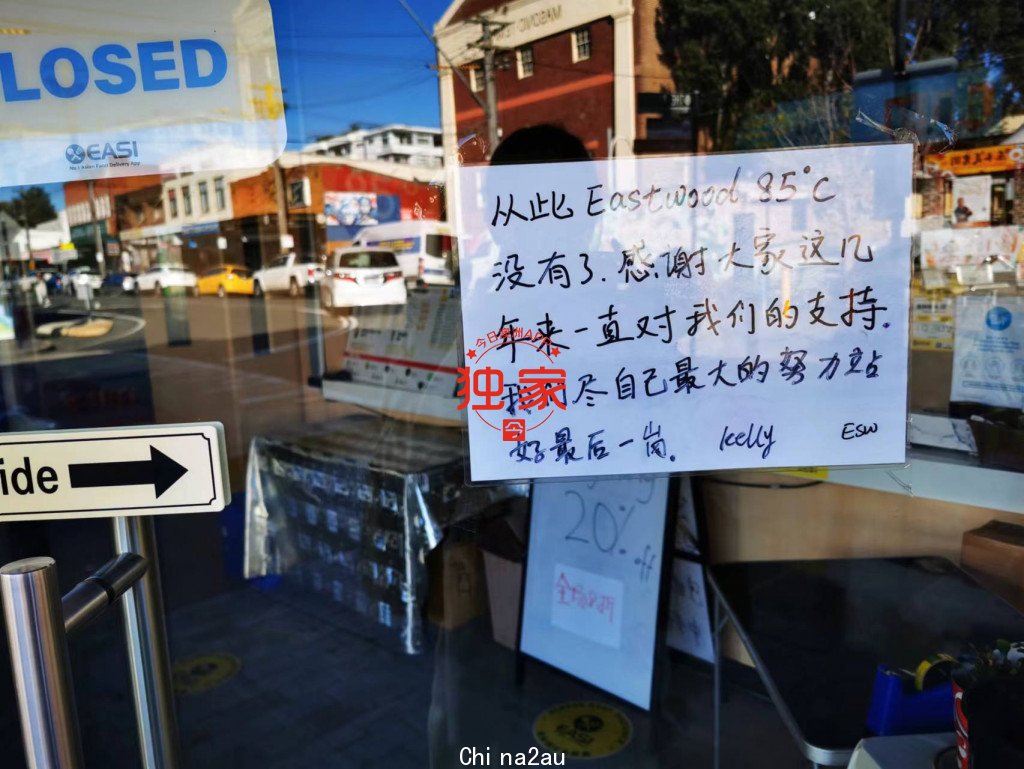 LOSED
EASI
No.1 Asian Food Delivery App
从此 Eastwood 85°C
没有了. 感谢大家这几
年来一直对我们的支持.
我们尽自己最大的努力站
好最后一岗. kelly ESW
今日澳洲APP
独家
今
ide
20% off
全场8折
Chi na2au